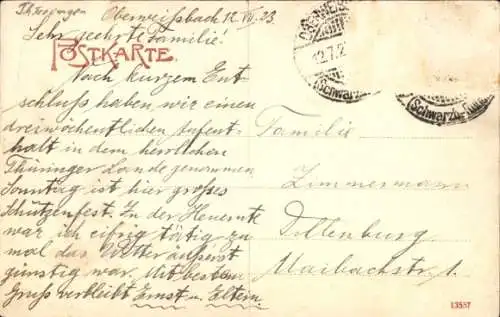 Oberweißbach 12. VII. 23.
Sehr geehrte Familie!
POSTKARTE.
Nach kurzem Ent-
schluß haben wir einen
dreiwöchentlichen Aufent-
halt in dem herrlichen
Thüringer Lande genommen
Sonntag ist hier großes
Schützenfest. In der Heuernte
war ich eifrig tätig zu
mal das Wetter äußerst
günstig war. Mit bestem
Gruß verbleibt Ernst u. Eltern.
12.7.2
(Schwarzb.
(Schwarzb.-Rud.
Familie
Zimmermann
Dillenburg
Maibachstr. 1.
13557